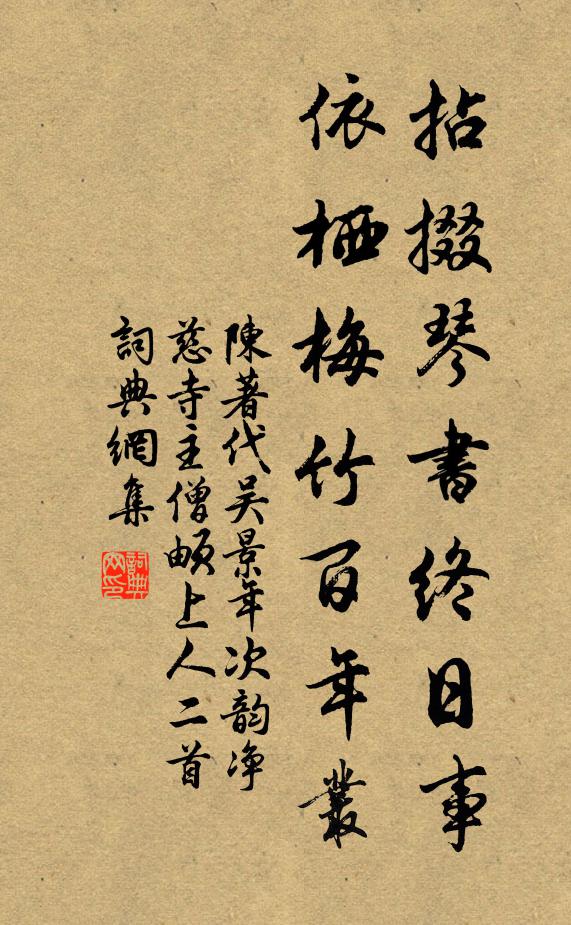 拈掇琴書終日事
依栖梅竹百年叢
陳著代吴景年次韵净
慈寺主僧頔上人二首
詞典網集
詞典
网印